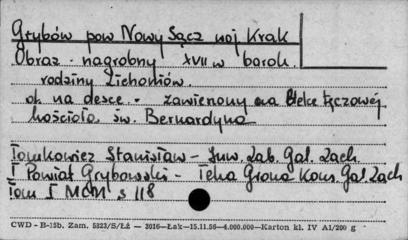 Grybów pow Nowy Sącz woj Krak
Obraz nagrobny XVII w barok.
rodziny Zichoniów.
ol. na desce - zawieszony na belce tęczowej
kościoła św. Bernardyna
Tomkowicz Stanisław - Inw. Zab. Gal. Zach.
I Powiat Grybowski - Teka Grona Kons. Gal. Zach
Tom I MCM s 118
CWD - B-15b. Zam. 5823/S/ŁŻ - 3016-Łak-15.11.56-4.000.000-Karton kl. IV A1/200 g